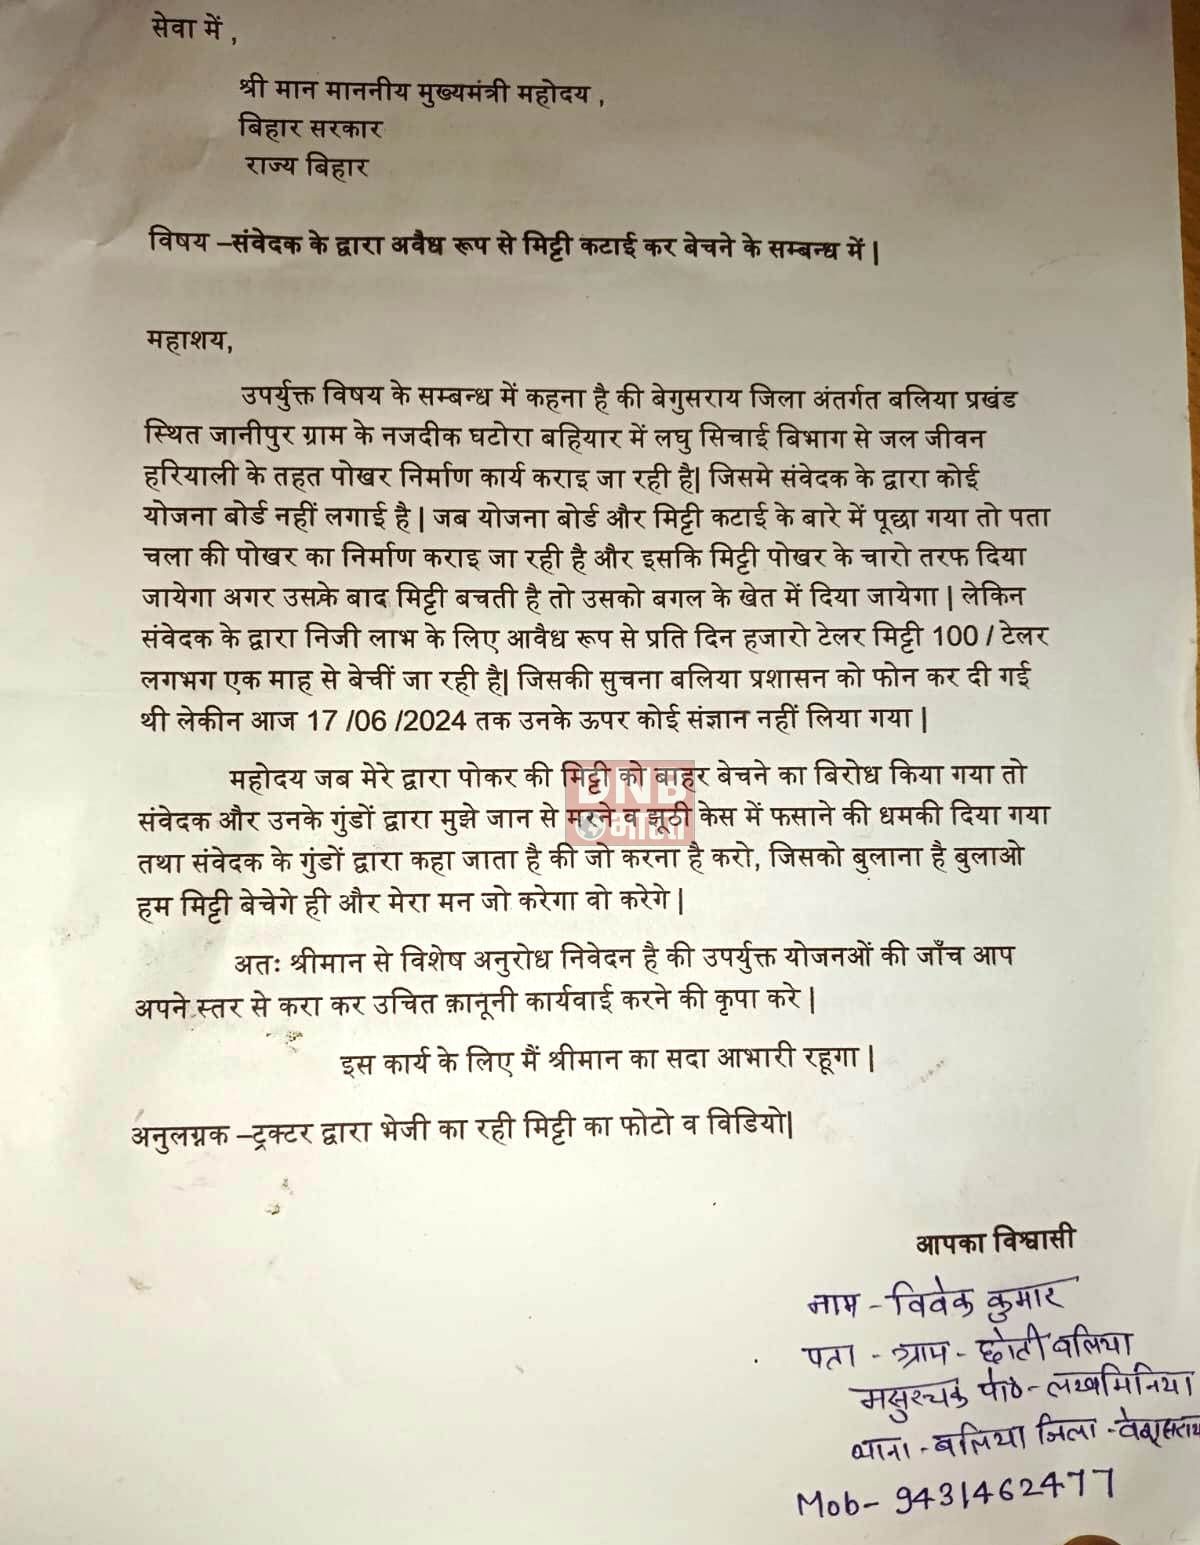 सेवा में ,
श्री मान माननीय मुख्यमंत्री महोदय ,
बिहार सरकार
राज्य बिहार
विषय –संवेदक के द्वारा अवैध रूप से मिट्टी कटाई कर बेचने के सम्बन्ध में |
महाशय,
उपर्युक्त विषय के सम्बन्ध में कहना है की बेगुसराय जिला अंतर्गत बलिया प्रखंड
स्थित जानीपुर ग्राम के नजदीक घटोरा बहियार में लघु सिचाई बिभाग से जल जीवन
हरियाली के तहत पोखर निर्माण कार्य कराइ जा रही है| जिसमे संवेदक के द्वारा कोई
योजना बोर्ड नहीं लगाई है | जब योजना बोर्ड और मिट्टी कटाई के बारे में पूछा गया तो पता
चला की पोखर का निर्माण कराइ जा रही है और इसकि मिट्टी पोखर के चारो तरफ दिया
जायेगा अगर उसके बाद मिट्टी बचती है तो उसको बगल के खेत में दिया जायेगा | लेकिन
संवेदक के द्वारा निजी लाभ के लिए आवैध रूप से प्रति दिन हजारो टेलर मिट्टी 100 / टेलर
लगभग एक माह से बेचीं जा रही है| जिसकी सुचना बलिया प्रशासन को फोन कर दी गई
थी लेकीन आज 17 /06 /2024 तक उनके ऊपर कोई संज्ञान नहीं लिया गया |
महोदय जब मेरे द्वारा पोकर की मिट्टी को बाहर बेचने का बिरोध किया गया तो
संवेदक और उनके गुंडों द्वारा मुझे जान से मरने व झूठी केस में फसाने की धमकी दिया गया
DNB
भारत
तथा संवेदक के गुंडों द्वारा कहा जाता है की जो करना है करो, जिसको बुलाना है बुलाओ
हम मिट्टी बेचेगे ही और मेरा मन जो करेगा वो करेगे |
अतः श्रीमान से विशेष अनुरोध निवेदन है की उपर्युक्त योजनओं की जाँच आप
अपने स्तर से करा कर उचित क़ानूनी कार्यवाई करने की कृपा करे |
इस कार्य के लिए मैं श्रीमान का सदा आभारी रहूगा |
अनुलग्नक –ट्रक्टर द्वारा भेजी का रही मिट्टी का फोटो व विडियो|
आपका विश्वासी
नाम - विवेक कुमार
पता - ग्राम - छोटी बलिया
मसुरचक पो० - लखमिनिया
थाना - बलिया जिला - बेगूसराय
Mob- 9431462477